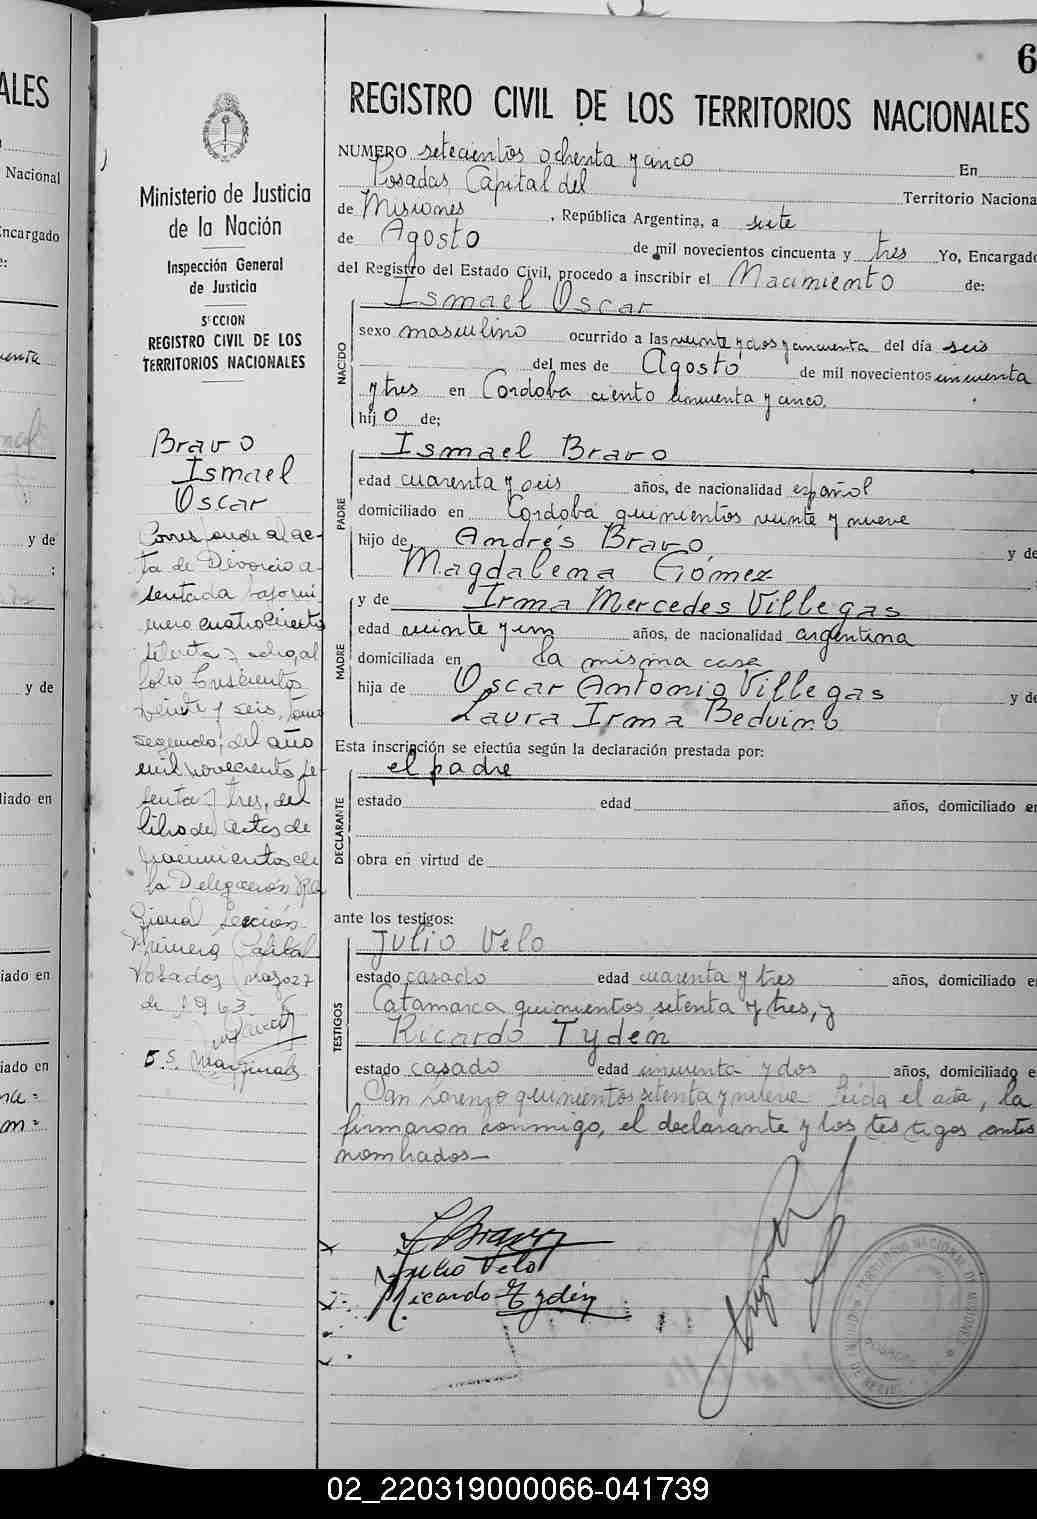 ALES
Nacional
Encargado
y de
y de
iado en
iado en
iado en
6
REGISTRO CIVIL DE LOS TERRITORIOS NACIONALES
Ministerio de Justicia
de la Nación
Inspección General
de Justicia
SECCION
REGISTRO CIVIL DE LOS
TERRITORIOS NACIONALES
Bravo
Ismael
Oscar
Corresponde al ac-
ta de Divorcio a-
sentada bajo nú-
mero cuatrociento
setenta y ocho, al
folio trescientos
veinte y seis, tomo
segundo, del año
mil novecientos se
senta y tres, del
libro de actas de
nacimientos de
la Delegación Re
gional Sección
Primera Capital
Posadas, mayo 27
de 1963
NUMERO setecientos ochenta y cinco En
Posadas, Capital del Territorio Naciona
de Misiones, República Argentina, a siete
de Agosto de mil novecientos cincuenta y tres Yo, Encargado
del Registro del Estado Civil, procedo a inscribir el Nacimiento de:
NACIDO
Ismael Oscar
sexo masculino ocurrido a las veinte y dos y cincuenta del día seis
del mes de Agosto de mil novecientos cincuenta
y tres en Cordoba ciento cincuenta y cinco.
hijo de;
PADRE
Ismael Bravo
edad cuarenta y seis años, de nacionalidad español
domiciliado en Cordoba quinientos veinte y nueve
hijo de Andrés Bravo, y de
Magdalena Gómez
MADRE
y de Irma Mercedes Villegas
edad veinte y un años, de nacionalidad argentina
domiciliada en la misma casa
hija de Oscar Antonio Villegas y de
Laura Irma Beduino
Esta inscripción se efectúa según la declaración prestada por:
el padre
DECLARANTE
estado edad años, domiciliado en
obra en virtud de
ante los testigos:
TESTIGOS
Julio Velo
estado casado edad cuarenta y tres años, domiciliado e
Catamarca quinientos setenta y tres, y
Ricardo Tydén
estado casado edad cincuenta y dos años, domiciliado e
San Lorenzo quinientos setenta y nueve Leida el acta, la
firmaron conmigo, el declarante y los testigos antes
nombrados—
I Bravo
Julio Velo
Ricardo Tydén
TERRITORIO NACIONAL DE MISIONES
POSADAS
02_220319000066-041739